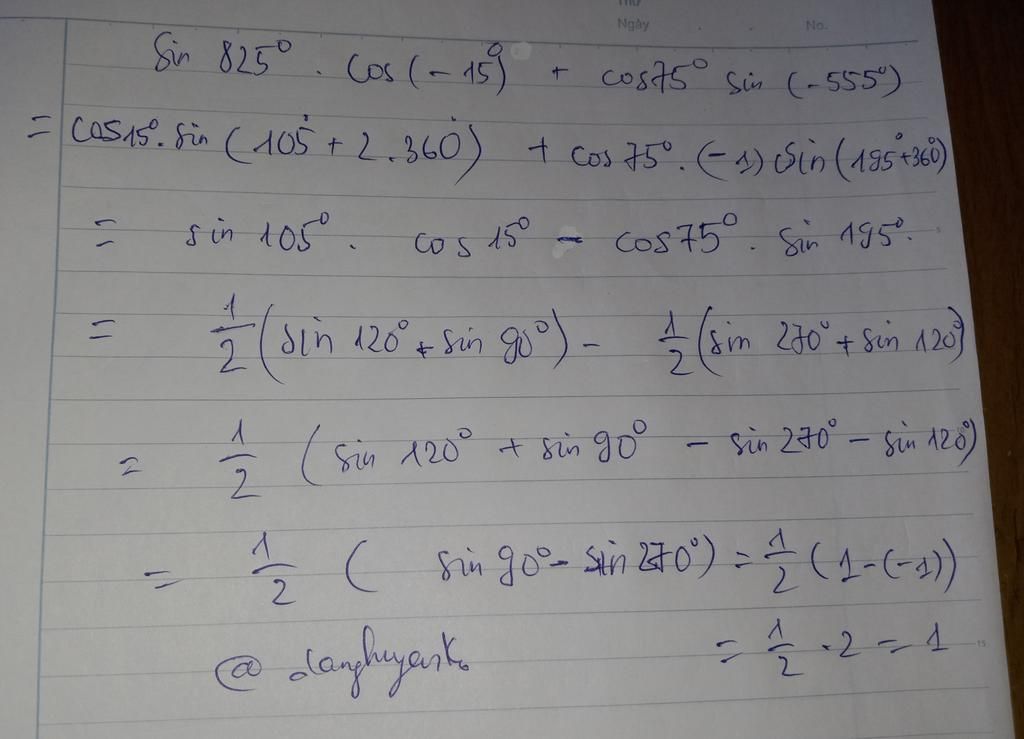 Thứ
Ngày . . No.
Sin 825° . cos(-15°) + cos75° sin (-555°)
= cos15°. sin (105° + 2.360°) + cos 75°. (-1) sin (195°+360°)
= sin 105° . cos 15° - cos75° . sin 195°.
= 1/2 (sin 120° + sin 90°) - 1/2 (sin 270° + sin 120°)
= 1/2 (sin 120° + sin 90° - sin 270° - sin 120°)
= 1/2 ( sin 90° - sin 270°) = 1/2 (1-(-1))
@ = 1/2 . 2 = 1
15